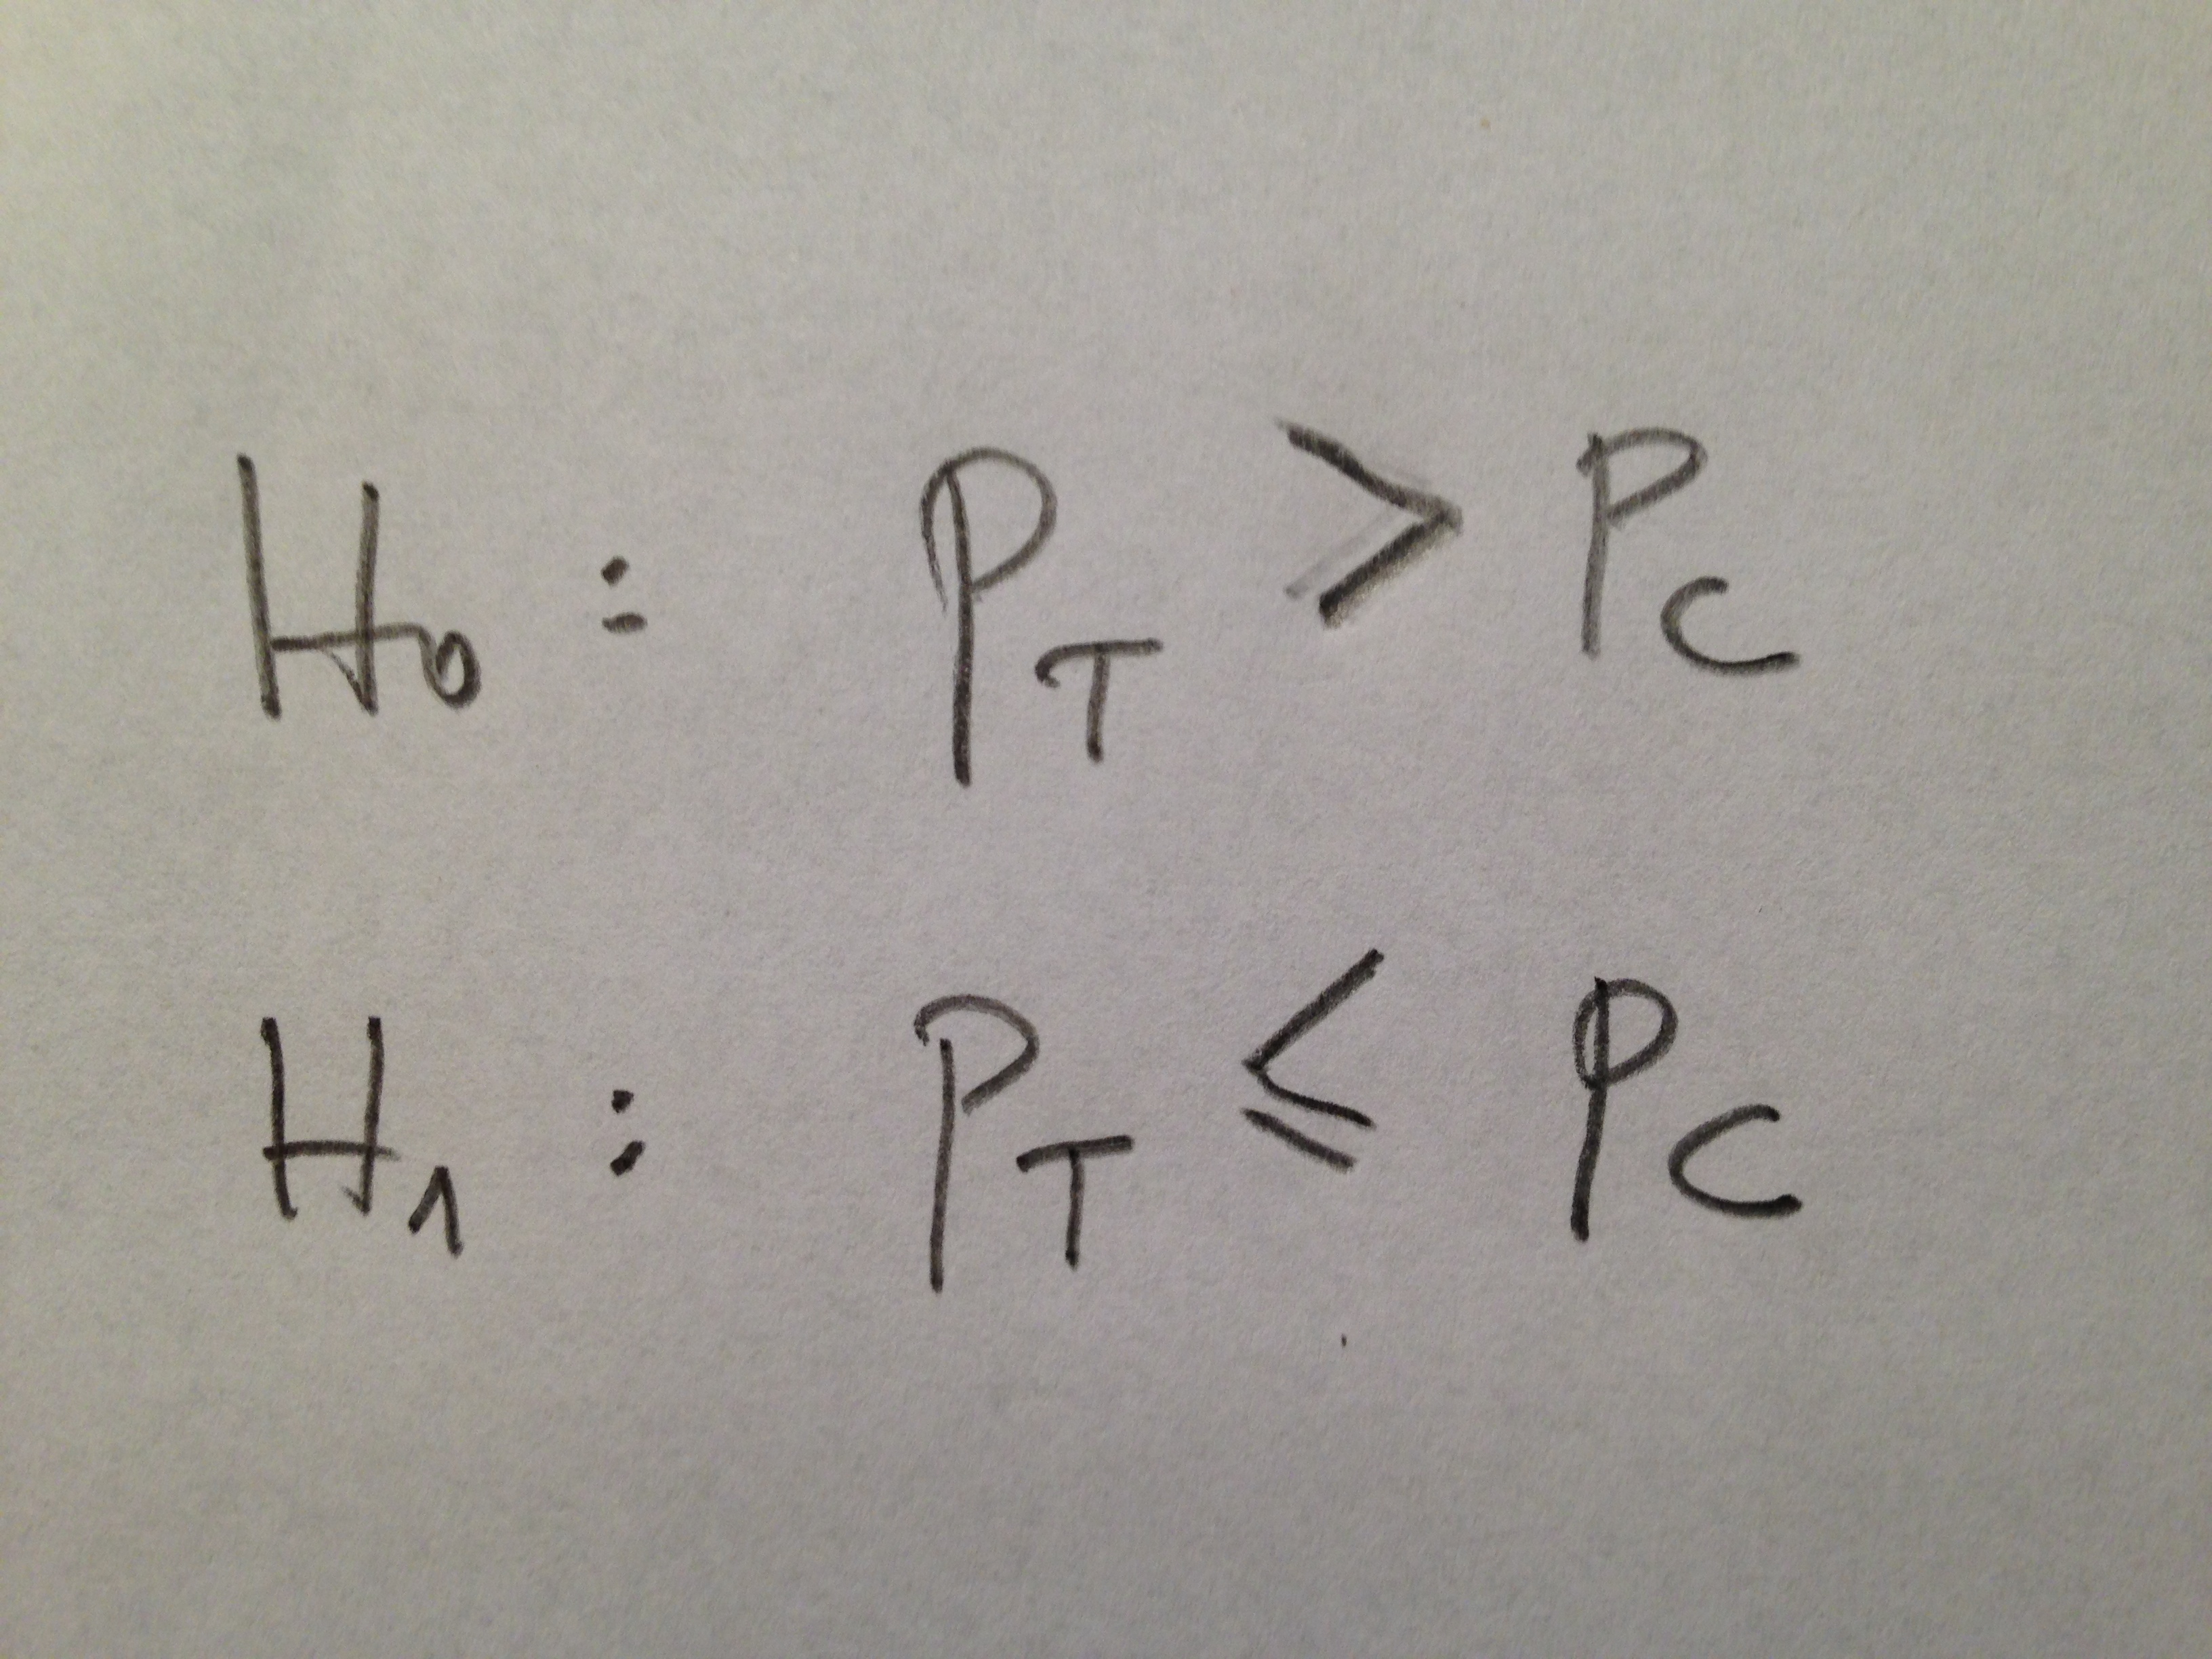 H₀ : P_T > P_C
H₁ : P_T ≤ P_C